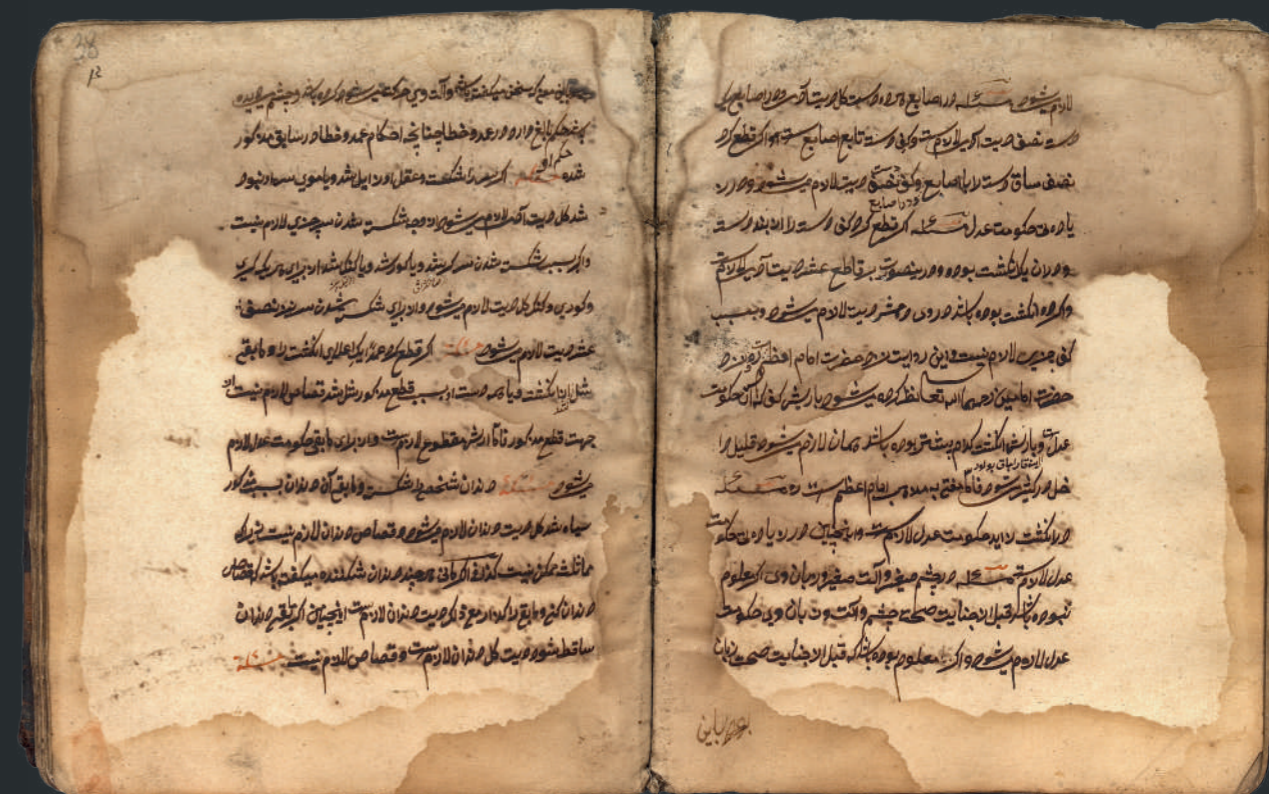 لازم میشود مسئله در اصابع ده دست کل دیت آمده و در اصابع یک
دست نصف دیت لازمست و کف دست تابع اصابع است و اگر قطع کرد
نصف ساق دست را با اصابع و کف نصف دیت لازم میشود و در
زیاده حکومت عدل مسئله اگر قطع کرد کف دست را از بند دست
و در آن یک انگشت بوده در ینصورت بر قاطع عشر دیت لازم
و اگر دو انگشت بوده باشد در وی دو عشر دیت لازم میشود و بسبب
کف چیزی لازم نیست و این روایت نزد حضرت امام اعظم است و نزد
حضرت امامین رحمهما الله تعالی نظر کرده میشود بارش کف که آن حکومت
عدل است و بارش انگشت کدام بیشتر بوده باشد همان لازم میشود قلیل را
دخل در کثیر میشود فاما مفتی به مذهب امام اعظم است ره مسئله
در انگشت زاید حکومت عدل لازمست و اینچنین در زیاده حکومت
عدل لازمست مسئله در چشم صغیر و آلت صغیر و زبان وی اگر معلوم
نبوده باشد قبل از جنایت صحت چشم و آلت و زبان وی حکومت
عدل لازم میشود و اگر معلوم بوده باشد که قبل از جنایت صحت زبان
بوده باین
سخن میگفته باشد و آلت وی حرکت میشود کرده باشد و چشم
حکم بالغ دارد در عمد و خطا چنانچه احکام عمد و خطا در سابق مذکور
شده مسئله اگر سر را شکست و عقل او زایل شد و یا موی سر او نبود
شد کل دیت لازم میشود از وجه شکست شدن سر چیزی لازم نیست
و اگر بسبب شکست شدن سر کر شد و یا کور شد و یا گنگ شد از برای هر یک کری
و کوری و گنگی کل دیت لازم میشود و از برای شکست شدن سر نیز نصف
عشر دیت لازم میشود مسئله اگر قطع کرد عمدا یک اعلای انگشت را و مابقی
شل انگشت و یا همه دست او بسبب قطع مذکور شل شد قصاص لازم نیست از
جهت قطع مذکور فاما ارش مقطوع لازمست و از برای مابقی حکومت عدل لازم
میشود مسئله دندان شخصی شکست و مابقی آن دندان بسبب مذکور
سیاه شد کل دیت دندان لازم میشود و قصاص دندان لازم نیست زیراکه
مماثلت ممکن نیست کذا فی الکرمانی هر چند دندان شکننده میگفته باشد که قصاص
دندان کن و مابقی را گذار مع ذلک دیت دندان لازمست اینچنین اگر مابقی دندان
ساقط شود دیت کل دندان لازمست و قصاص لازم نیست مسئله